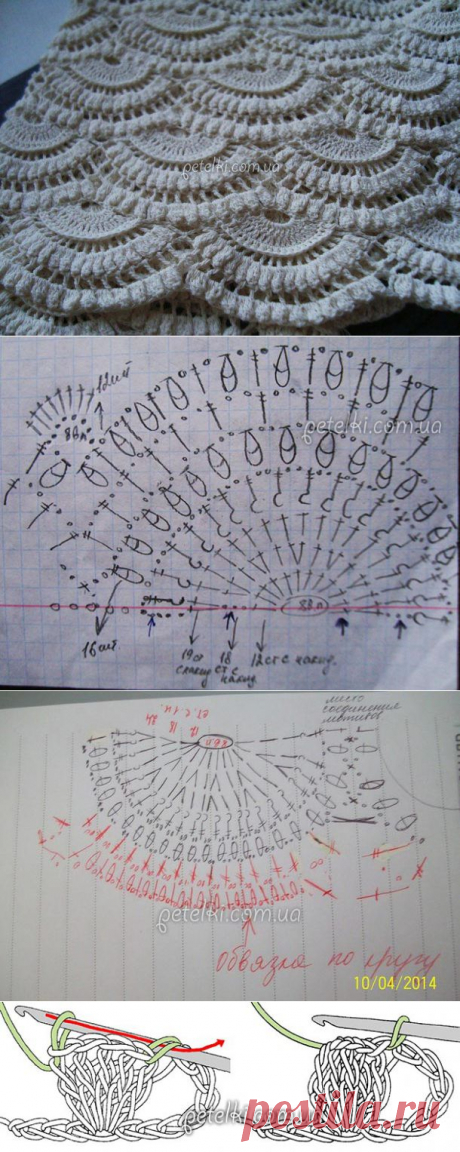 petelki.com.ua
12шт
8вп
petelki.com.ua
8вп
16шт.
19ст
18
12ст с накид.
с накид
ст с
накид
место
соединения
мотивов
ст. с 1 н.
12 18 24
petelki.com.ua
обвязка по кругу
10/04/2014
petelki.com.ua
postila.ru